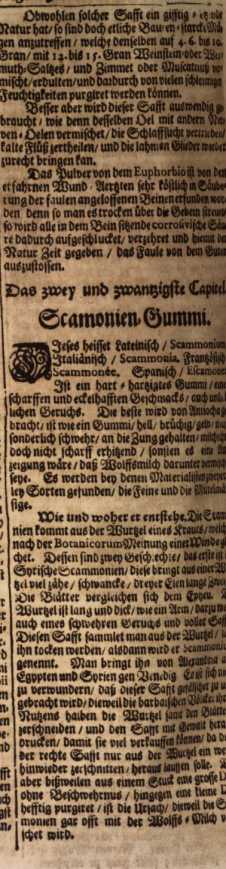 Obwohlen solcher Safft ein gifftig
Natur hat / so sind doch etliche Bauern starck
gen anzutreffen / welche denselben auf 4. 6. biß 10.
Gran / mit 12. bis 15. Gran Weinstein oder
muth-Saltzes / und Zimmet oder Muscatnuß
mischt / erdulten / und dardurch von vielen schleimigen
Feuchtigkeiten purgiret werden können.
Besser aber wird dieser Safft auswendig
braucht / wie denn desselben Oel mit andern
ven-Oelen vermischet / die Schlafflucht vertrieben /
kalte Flüß zertheilen / und die lahmen Glieder wieder
zurecht bringen kan.
Das Pulver von dem Euphorbio ist von den
erfahrnen Wund-Aertzten sehr köstlich in
rung der faulen angeloffenen Beinen erfunden wor-
den denn so man es trocken über die Gebein streuet
so wird alle in dem Bein sitzende corrosivische
re dardurch aufgeschlucket / verzehret und hiemit der
Natur Zeit gegeben / das Faule von dem Guten
auszustossen.
Das zwey und zwantzigste Capitel
Scamonien-Gummi.
Dieses heisset Lateinisch / Scammonium
Italiänisch / Scammonia. Frantzösisch
Scammonée. Spanisch /
Ist ein hart-hartzigtes Gummi /
scharffen und eckelhafften Geschmacks /
lichen Geruchs. Die beste wird von Antiochia
bracht / ist wie ein Gummi / hell / brüchig /
sonderlich schwehr / an die Zung gehalten /
doch nicht scharff erhitzend / sonsten es ein
zeigung wäre / daß Wolffsmilch darunter vermischt
seye. Es werden bey denen Materialisten
ley Sorten gefunden / die Feine und die
sige.
Wie und woher er entstehe. Die
nien kommt aus der Wurtzel eines Krauts / welches
nach der Botanicorum Meinung einer Winde
chet. Dessen sind zwey Geschlechte / das erste ist
Syrische Scammonien / diese bringt aus einer
tzel viel zähe / schwancke / dreyer Elen lange
Die Blätter vergleichen sich dem Epheu.
Wurtzel ist lang und dick / wie ein Arm / darzu
auch eines schwehren Geruchs und voller Safft
Diesen Safft sammlet man aus der Wurtzel /
ihn tocken werden / alsdann wird er Scammonium
genennt. Man bringt ihn von Alexandria aus
Egypten und Syrien gen Venedig. Es ist sich nicht
zu verwundern / daß dieser Safft
gebracht wird / dieweil die barbarischen Völcker
Nutzens halben die Wurtzel samt den Blättern
zerschneiden / und den Safft mit Gewalt
drucken / damit sie viel verkauffen können / da
der rechte Safft nur aus der Wurtzel ein wenig
hinwieder zerschnitten / heraus lauffen solle.
aber bißweilen aus einem Stuck eine grosse
ohne Beschwehrnus / hingegen eine kleine
hefftig purgiret / ist die Ursach / dieweil die
monien gar offt mit der Wolffs-Milch
schet wird.